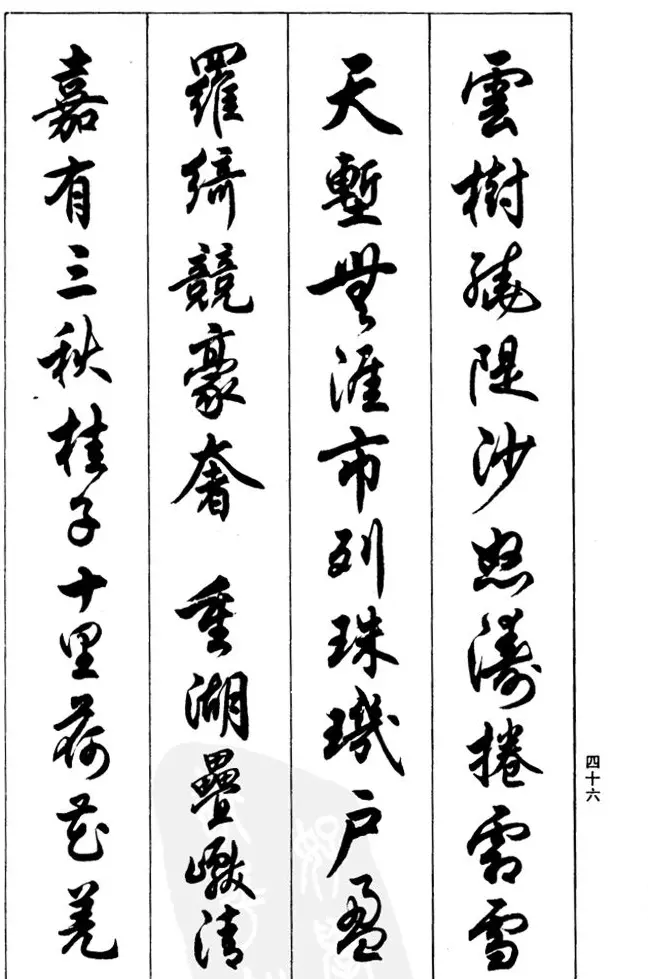 四十六
雲樹繞隄沙怒濤捲霜雪
天塹無涯市列珠璣戶盈
羅綺競豪奢 重湖疊巘清
嘉有三秋桂子十里荷花羌